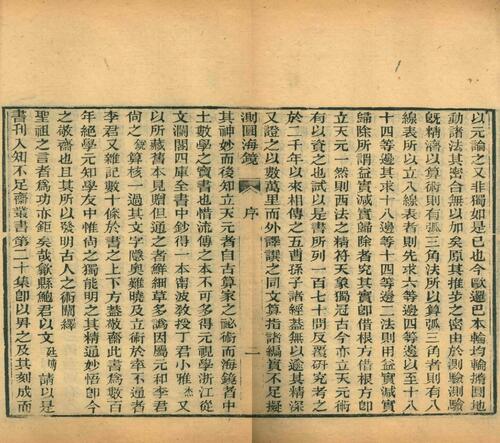 以元論之又非獨如是已也今歐邏巴本輪均輪橢圓地
動諸法其密合無以加矣原其推步之密由於測驗測驗
旣精濟以算術則有弧三角法所以算弧三角者則有八
線表所以立八線表者則先求六等邊四等邊以至十八
十四等邊其求十八邊等十四等邊二法則用益實減實
歸除所謂益實減實歸除者究其實卽借根方借根方卽
立天元一然則西法之精符天象獨冠古今亦立天元術
有以資之也試以是書所列一百七十問反覆研究考之
於二千年以來相傳之五曹孫子諸經蓋無以逾其精深
又證之以數萬里而外譯譔之同文算指諸編實不足擬
測圓海鏡 序 一
其神妙而後知立天元者自古算家之祕術而海鏡者中
土數學之寶書也惜流傳之本不可多得元視學浙江從
文瀾閣四庫全書中鈔得一本南波教授丁君小雅杰又
以所藏舊本見贈但通之者鮮細草多譌因屬元和李君
尙之 算核一過其文字隱奧難曉及立術於率不通者
李君又雜記數十條於書之上下方蓋敬齋此書爲數百
年絕學元知學友中惟尙之獨能明之其精通妙悟卽今
之敬齋也且其所以發明古人之術闡繹
聖祖之言者爲功亦鉅矣哉歙縣鮑君以文廷博請以是
書刊入知不足齋叢書第二十集卽以昇之及其刻成而